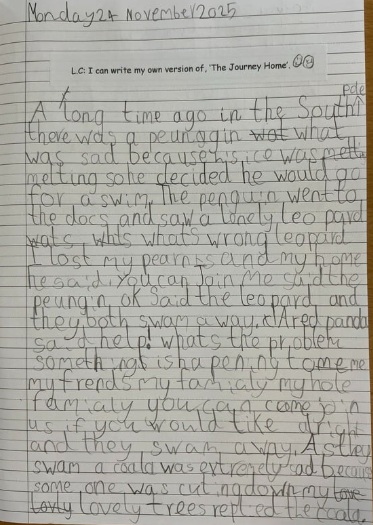 Monday 24 November 2025
L.C: I can write my own version of, 'The Journey Home'.
pole
A long time ago in the South
there was a peunggin wat what
was sad because his ice was melti
melting so he decided he would go
for a swim. The penguin went to
the docs and saw a lonely leo pard
wats, whts whats wrong leopard
I lost my pearnts and my home
he said. you can Join me said the
peungin. OK said the leopard and
they both swam away. A red panda
said help! whats the problem
something is hapening to me me
my frends my famialy my hole
famialy you can come join
us if you would like alright
and they swam away. As they
swam a coala was extremely sad because
some one was cuting down my love
lovly lovely trees replied the coala.